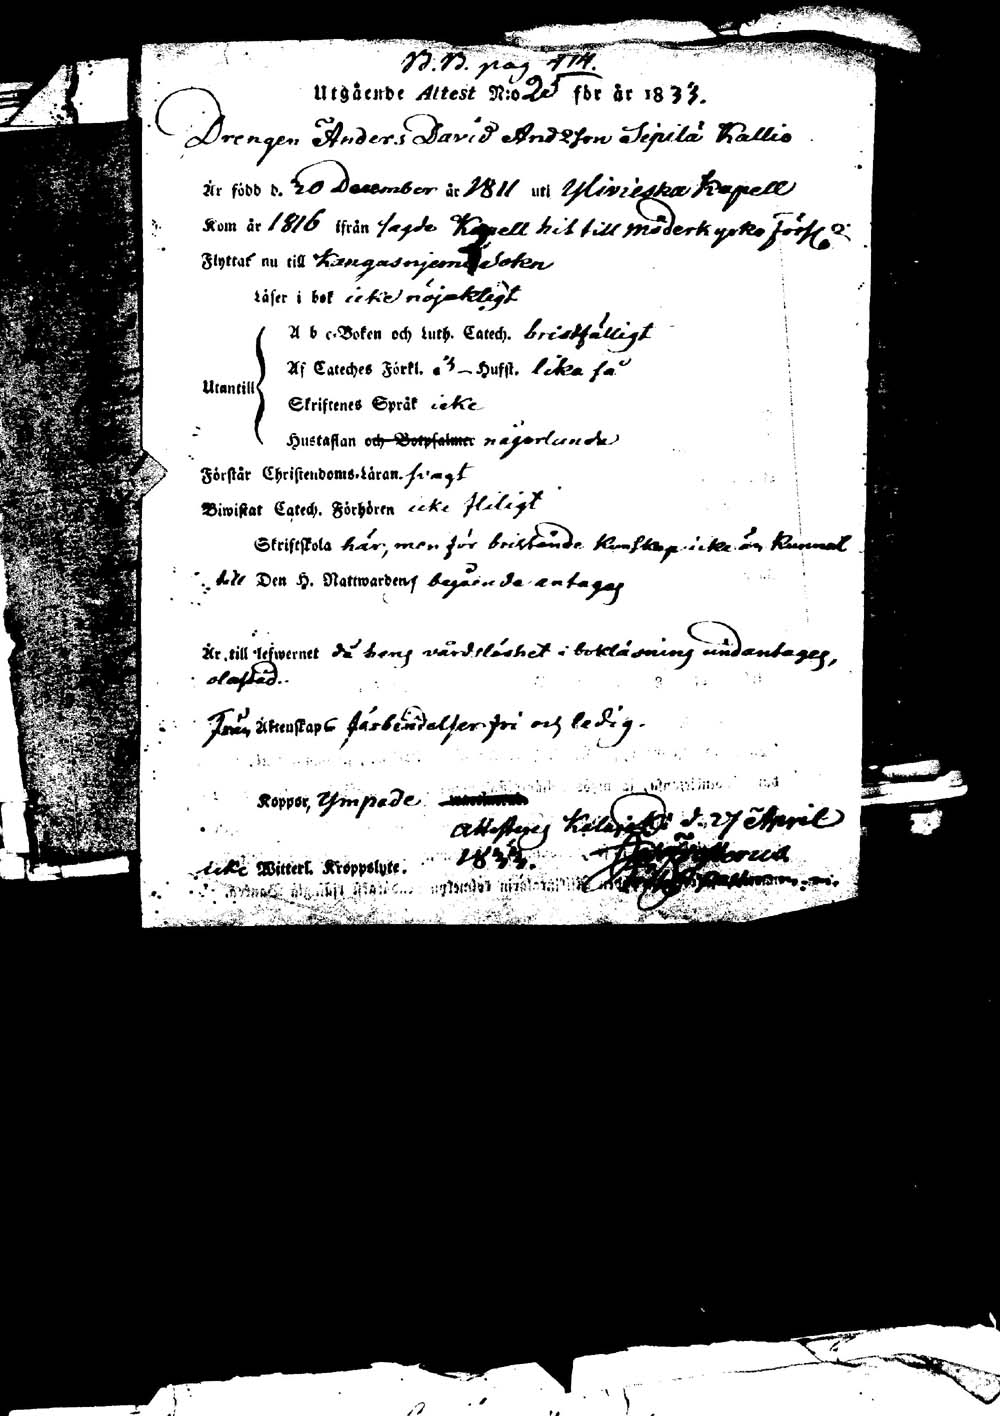 N. B. pag 414.
Utgående Attest N:o 25 för år 1833.
Drengen Anders David Andsson Sipilä Kallio
Är född d. 20 December år 1811 uti Ylivieska Kapell
Kom år 1816 ifrån sagde Kapell hit till Moderkyrko förs:
Flyttar nu till Kangasnjemi Soken
Läser i bok icke nöjaktigt
A b c-Boken och Luth. Catech. bristfälligt
Af Cateches Förkl. o - Hufst. lika så
Utantill
Skriftenes Språk icke
Hustaflan och Botpsalmer någorlunda
Förstår Christendoms-Läran. svagt
Biwistat Catech. Förhören icke flitigt
Skriftskola här, men för bristande kunskap icke än kunnat
till Den H. Nattwardens begående antagas
Är till lefwernet då hans vårdslöshet i bokläsning undantages,
olastad.
Från Äktenskaps förbindelser fri och ledig.
Koppor, Ympade
attesteras Kelviå d. 27 April
1833.
icke Witterl. Kroppslyte.